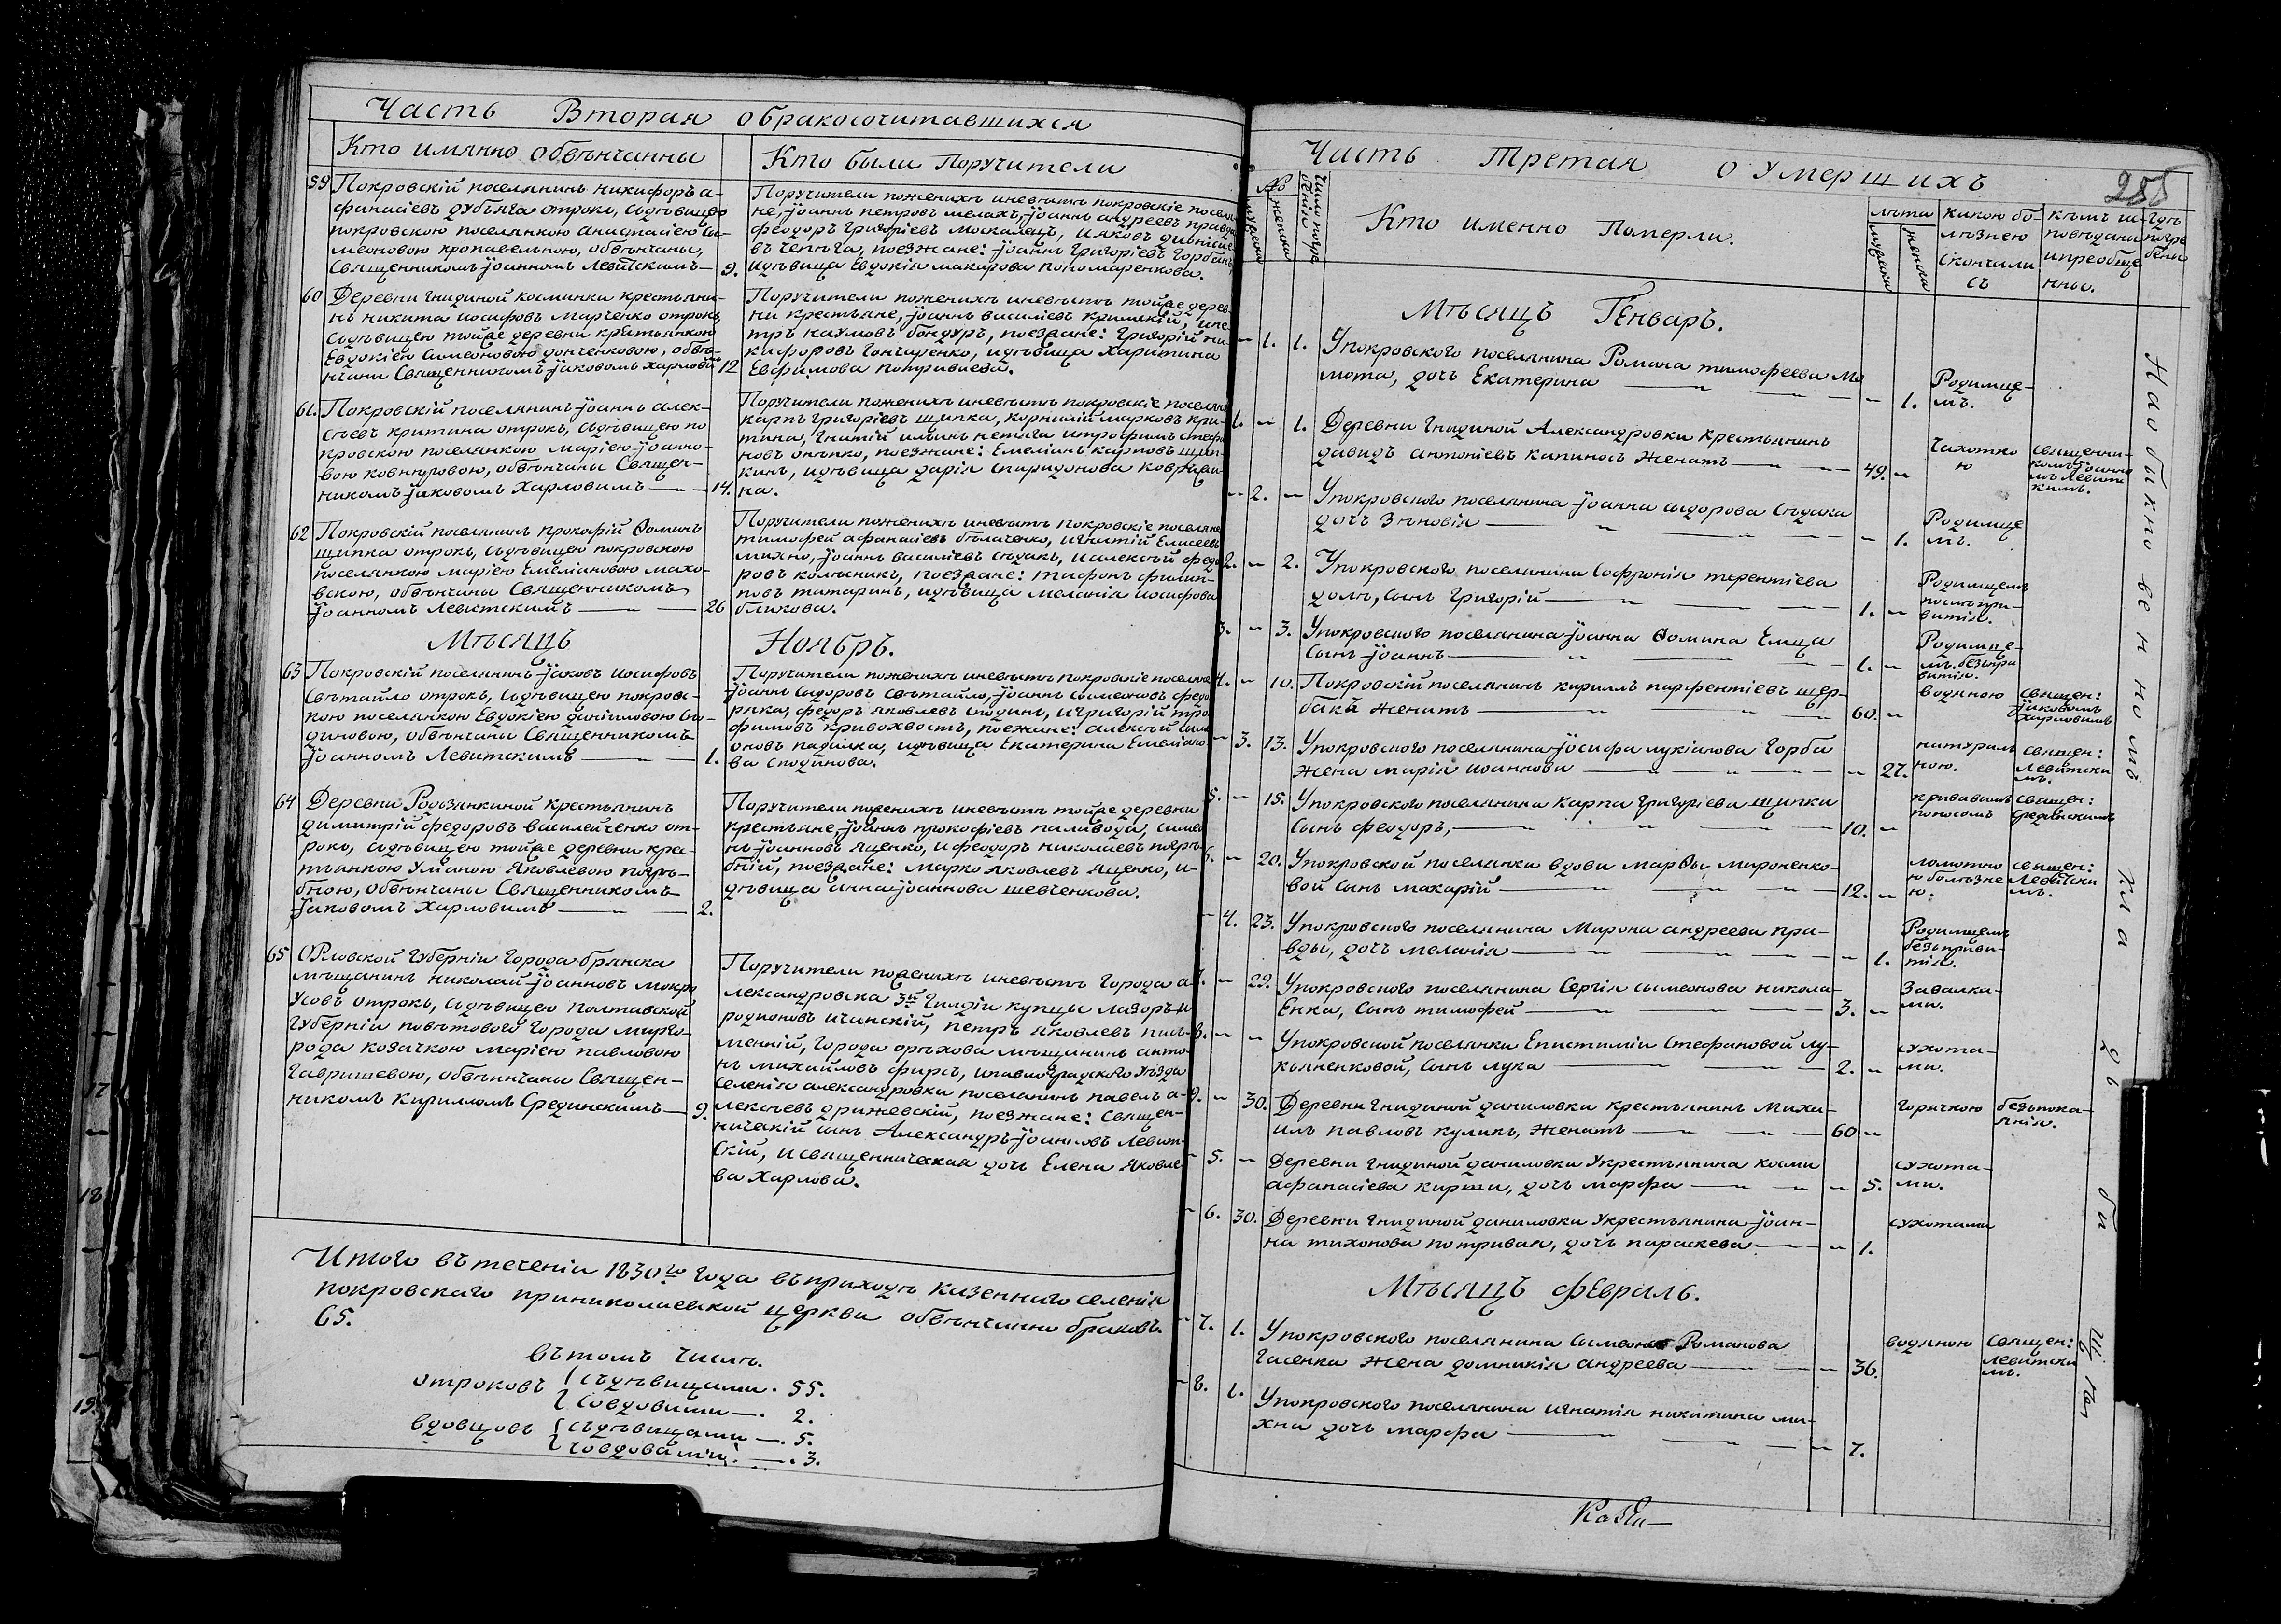 Часть Вторая о бракосочитавшихся
Кто имянно Обвѣнчанны
Кто были Поручители
59
Покровскій поселянинъ Никифоръ а-
фанасіевъ дубяга отрокъ, съдѣвицею
покровскою поселянкою Анастасіею Си-
меоновою кропавельною, обвѣнчаны,
Священникомъ Іоанномъ Левитскимъ — 9.
Поручители поженихѣ иневѣстѣ покровскіе поселя-
не, Іоаннъ петровъ мелахъ, Іоаннъ андреевъ правда
феодоръ Григоріевъ Москалецъ, Ияковъ
въ чепѣга, поезжане: Іоаннъ Григоріевъ Горбань
идѣвица Евдокія макарова пономаренкова.
60
Деревни Гнидиной космынки крестьяни-
нъ никита иосифовъ Марченко отрокъ
съдѣвицею тойже деревни крестьянкою
Евдокіею Симеоновою донченковою, обвѣ-
нчаны Священникомъ Іаковомъ Харловымъ 12
Поручители поженихѣ иневѣстѣ тойже дерев-
ни крестьяне, Іоаннъ василіевъ кримскій, ипе-
тръ наумовъ бондуръ, поезжане: Григорій ни-
кифоровъ Гончаренко, идѣвица Харитина
Евфимова Потриваева.
61.
Покровскій поселянинъ Іоаннъ алек-
сѣевъ критина отрокъ, съдѣвицею по
кровскою поселянкою Маріею Іоанно-
вою ковнеровою, обвѣнчаны Священ-
никомъ Іаковомъ Харловимъ — 14.
Поручители поженихѣ иневѣстѣ покровскіе поселяне
карпъ Григоріевъ щипка, корнилій марковъ кри-
тина, Гнатій ильинъ нетяга итрофимъ стефа
новъ онѣпко, поезжане: Емеліанъ карповъ щип-
кинъ, идѣвица дарія спиридонова ковржи-
на.
62
Покровскій поселянинъ прокофій Ѳоминъ
щипка отрокъ, съдѣвицею покровскою
поселянкою маріею Емеліановою махо-
вскою, обвѣнчаны Священникомъ
Іоанномъ Левитскимъ — 26
Поручители поженихѣ иневѣстѣ Покровскіе поселяне
тимофей афанасіевъ бѣлаченко, Игнатій Елисеевъ
михно, Іоаннъ василіевъ сѣдакъ, иалексѣй федо
ровъ колѣсникъ, поезжане: тифонъ филип-
повъ татаринъ, идѣвица меланія иосифова
бликова.
Мѣсяцъ Ноябрь.
63
Покровскій поселянинъ Іаковъ иосифовъ
свѣтайло отрокъ, съдѣвицею покровс-
кою поселянкою Евдокіею даніиловою сѣ-
диновою, обвѣнчаны Священникомъ
Іоанномъ Левитскимъ — 1.
Поручители поженихѣ иневѣстѣ покровскіе поселяне
Іоаннъ сыдоровъ свѣтайло, Іоаннъ сымеоновъ федо
ряка, федоръ яковлевъ сподинъ, игригорій тро
фимовъ кривохвостъ, поезжане: алексѣй симе
оновъ падилка, идѣвица Екатерина Емеліано-
ва сподинова.
64
Деревни Розьзянкиной крестьянинъ
димитрій федоровъ василейченко от-
рокъ, съдѣвицею тойже деревни кре-
тьянкою Уманою Яковлевою погрѣ-
бною, обвѣнчаны Священникомъ
Іаковомъ Харловимъ — 2.
Поручители поженихѣ иневѣстѣ тойже деревни
крестьяне, Іоаннъ прокофіевъ паливода, симео
нъ Іоанновъ Яценко, ифеодоръ николаевъ погрѣ-
бній, поезжане: Марко Яковлевъ Яценко, и-
дѣвица анна Іоаннова шевченкова.
65
Орловской Губерніи города брянска
мѣщанинъ николай Іоанновъ Мокро
Усовъ отрокъ, съдѣвицею Полтавской
Губерніи повѣтового города мирго-
рода козачкою Маріею павловою
Гавришевою, обвѣнчаны Священ-
никомъ кирилломъ Срединскимъ — 9.
Поручители поженихѣ иневѣстѣ Города а
лександровска 3й гилдіи купцы лазоръ и
родионовъ ичанскій, петръ яковлевъ пись-
менній, города орѣхова мѣщанинъ анто-
нъ михайловъ фирсъ, ипавлоградского уѣзда
селенія александровки поселянинъ павелъ а-
лексѣевъ дрижевскій, поезжане: Священ-
ническій сынъ Александръ Іоанновъ Левит-
скій, исвященническая дочь Елена Яковле
ва Харлова.
Итого вътеченіи 1830го года въприходѣ Казеннаго селенія
покровскаго приниколаевской церкви обвѣнчанно браковъ.
65.
вътомъ числѣ.
отроковъ { съдѣвицами. 55.
{ совдовами — . 2.
вдовцовъ { съдѣвицами — . 5.
{ совдовами. — . 3.
Часть Третая о Умершихъ
255
№
мужска
женска
Число погребенія
Кто именно Померли.
лѣта
мужска
женска
какою бо-
лѣзнею
скончали
сь
кѣмъ ис-
повѣданы
ипреобще
нны.
Гдѣ
погре
бены
Мѣсяцъ Генварь.
— 1. 1. Упокровского поселянина Романа тимофеева Мо
мота, дочь Екатерина — 1. Родимце-
мъ.
1. — 1. Деревни Гнидиной Александровки крестьянинъ
давидъ антоніевъ капиносъ женатъ — 49. — Чахотко
ю
священни-
комъ Іоанно
мъ Левитс
кимъ.
— 2. — Упокровского поселянина Іоанна сыдорова сѣдака
дочь Зѣновія — 1. Родимце
мъ.
2. — 2. Упокровского поселянина Софронія терентіева
доля, сынъ Григорій — 1. — Родимцемъ
послѣпри-
витія.
3. — 3. Упокровского поселянина Іоанна Ѳомина Емца
Сынъ Іоаннъ — 1. — Родимце-
мъ. безпри
витія.
4. — 10. Покровскій поселянинъ кирилъ парфентіевъ щер-
бакъ женатъ — 60. — водяною
Священ:
Іаковомъ
Харловимъ
— 3. 13. Упокровского поселянина Іосифа лукіанова Горба
жена марія иоаннова — 27. натураль
ною.
Священ:
Левитски
мъ.
5. — 15. Упокровского поселянина Карпа Григоріева щипки
Сынъ феодоръ, — 10. — кривавымъ
поносомъ
священ:
Срединскимъ
6. — 20. Упокровской поселянки вдови марѳы, мироненко-
вой сынъ макарій — 12. — ломотно
ю болѣзне
ю.
священ:
Левитски
мъ.
— 4. 23. Упокровского поселянина Мирона андреева пра-
вды, дочь меланія — 1. Родимцемъ
безприви-
тія.
7. — 29. Упокровского поселянина Сергія сымеонова никола-
Енка, Сынъ тимофей — 3. — Завалка-
ми.
8. — — Упокровской поселянки Епистиміи Стефановой лу-
кьяненковой, сынъ лука — 2. — сухота-
ми.
9. — 30. Деревни гнидиной даниловки крестьянинъ Миха-
илъ павловъ куликъ, женатъ — 60 — горячкою
безпока-
янія.
— 5. — Деревни гнидиной даниловки Укрестьянина косми
афанасіева кирши, дочь марфа — 5. сухота-
ми.
— 6. 30. Деревни гнидиной даниловки Укрестьянина Іоан-
на тихонова потривая, дочь параскева — 1. сухотами
Мѣсяцъ февраль.
— 7. 1. Упокровского поселянина сымеона Романова
Гасенка жена домникія андреева — 36. водяною
Священ:
Левитски
мъ.
— 8. 1. Упокровского поселянина игнатія никитина ми-
хна дочь марфа — 7.
На обыкновенномъ кладбищѣ